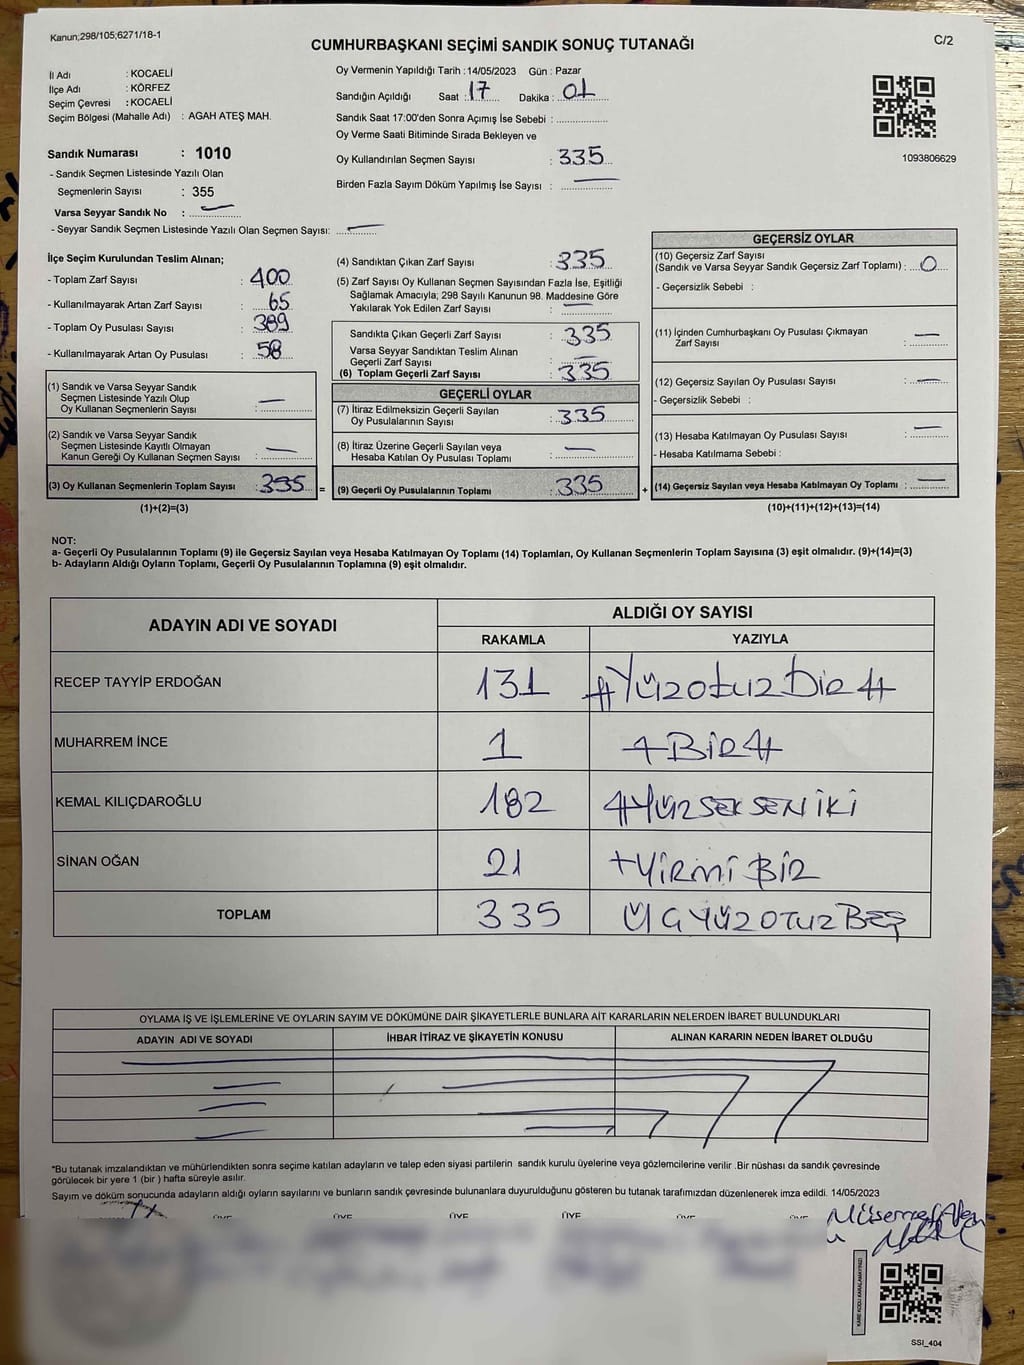 Kanun;298/105;6271/18-1
CUMHURBAŞKANI SEÇİMİ SANDIK SONUÇ TUTANAĞI
C/2
İl Adı : KOCAELİ
İlçe Adı : KÖRFEZ
Seçim Çevresi : KOCAELİ
Seçim Bölgesi (Mahalle Adı) : AGAH ATEŞ MAH.
Sandık Numarası : 1010
- Sandık Seçmen Listesinde Yazılı Olan
Seçmenlerin Sayısı : 355
Varsa Seyyar Sandık No :
- Seyyar Sandık Seçmen Listesinde Yazılı Olan Seçmen Sayısı:
Oy Vermenin Yapıldığı Tarih : 14/05/2023 Gün : Pazar
Sandığın Açıldığı Saat : 17 Dakika : 01
Sandık Saat 17:00'den Sonra Açımış İse Sebebi :
Oy Verme Saati Bitiminde Sırada Bekleyen ve
Oy Kullandırılan Seçmen Sayısı : 335
Birden Fazla Sayım Döküm Yapılmış İse Sayısı :
1093806629
İlçe Seçim Kurulundan Teslim Alınan;
- Toplam Zarf Sayısı : 400
- Kullanılmayarak Artan Zarf Sayısı : 65
- Toplam Oy Pusulası Sayısı : 389
- Kullanılmayarak Artan Oy Pusulası : 58
(1) Sandık ve Varsa Seyyar Sandık
Seçmen Listesinde Yazılı Olup
Oy Kullanan Seçmenlerin Sayısı :
(2) Sandık ve Varsa Seyyar Sandık
Seçmen Listesinde Kayıtlı Olmayan
Kanun Gereği Oy Kullanan Seçmen Sayısı :
(3) Oy Kullanan Seçmenlerin Toplam Sayısı : 335 =
(1)+(2)=(3)
(4) Sandıktan Çıkan Zarf Sayısı : 335
(5) Zarf Sayısı Oy Kullanan Seçmen Sayısından Fazla İse, Eşitliği
Sağlamak Amacıyla; 298 Sayılı Kanunun 98. Maddesine Göre
Yakılarak Yok Edilen Zarf Sayısı :
Sandıkta Çıkan Geçerli Zarf Sayısı : 335
Varsa Seyyar Sandıktan Teslim Alınan
Geçerli Zarf Sayısı :
(6) Toplam Geçerli Zarf Sayısı : 335
GEÇERLİ OYLAR
(7) İtiraz Edilmeksizin Geçerli Sayılan
Oy Pusulalarının Sayısı : 335
(8) İtiraz Üzerine Geçerli Sayılan veya
Hesaba Katılan Oy Pusulası Toplamı :
(9) Geçerli Oy Pusulalarının Toplamı : 335 +
GEÇERSİZ OYLAR
(10) Geçersiz Zarf Sayısı
(Sandık ve Varsa Seyyar Sandık Geçersiz Zarf Toplamı) : 0
- Geçersizlik Sebebi :
(11) İçinden Cumhurbaşkanı Oy Pusulası Çıkmayan
Zarf Sayısı :
(12) Geçersiz Sayılan Oy Pusulası Sayısı :
- Geçersizlik Sebebi :
(13) Hesaba Katılmayan Oy Pusulası Sayısı :
- Hesaba Katılmama Sebebi :
(14) Geçersiz Sayılan veya Hesaba Katılmayan Oy Toplamı :
(10)+(11)+(12)+(13)=(14)
NOT:
a- Geçerli Oy Pusulalarının Toplamı (9) ile Geçersiz Sayılan veya Hesaba Katılmayan Oy Toplamı (14) Toplamları, Oy Kullanan Seçmenlerin Toplam Sayısına (3) eşit olmalıdır. (9)+(14)=(3)
b- Adayların Aldığı Oyların Toplamı, Geçerli Oy Pusulalarının Toplamına (9) eşit olmalıdır.
ADAYIN ADI VE SOYADI
ALDIĞI OY SAYISI
RAKAMLA YAZIYLA
RECEP TAYYİP ERDOĞAN 131 #Yüzotuzbir#
MUHARREM İNCE 1 #Bir#
KEMAL KILIÇDAROĞLU 182 #YÜZSEKSENİKİ
SİNAN OĞAN 21 +YİRMİ BİR
TOPLAM 335 ÜÇYÜZOTUZBEŞ
OYLAMA İŞ VE İŞLEMLERİNE VE OYLARIN SAYIM VE DÖKÜMÜNE DAİR ŞİKAYETLERLE BUNLARA AİT KARARLARIN NELERDEN İBARET BULUNDUKLARI
ADAYIN ADI VE SOYADI İHBAR İTİRAZ VE ŞİKAYETİN KONUSU ALINAN KARARIN NEDEN İBARET OLDUĞU
*Bu tutanak imzalandıktan ve mühürlendikten sonra seçime katılan adayların ve talep eden siyasi partilerin sandık kurulu üyelerine veya gözlemcilerine verilir .Bir nüshası da sandık çevresinde
görülecek bir yere 1 (bir ) hafta süreyle asılır.
Sayım ve döküm sonucunda adayların aldığı oyların sayılarını ve bunların sandık çevresinde bulunanlara duyurulduğunu gösteren bu tutanak tarafımızdan düzenlenerek imza edildi. 14/05/2023
ÜYE ÜYE ÜYE ÜYE ÜYE ÜYE
KARE KODU KARALAMAYINIZ!
SSI_404